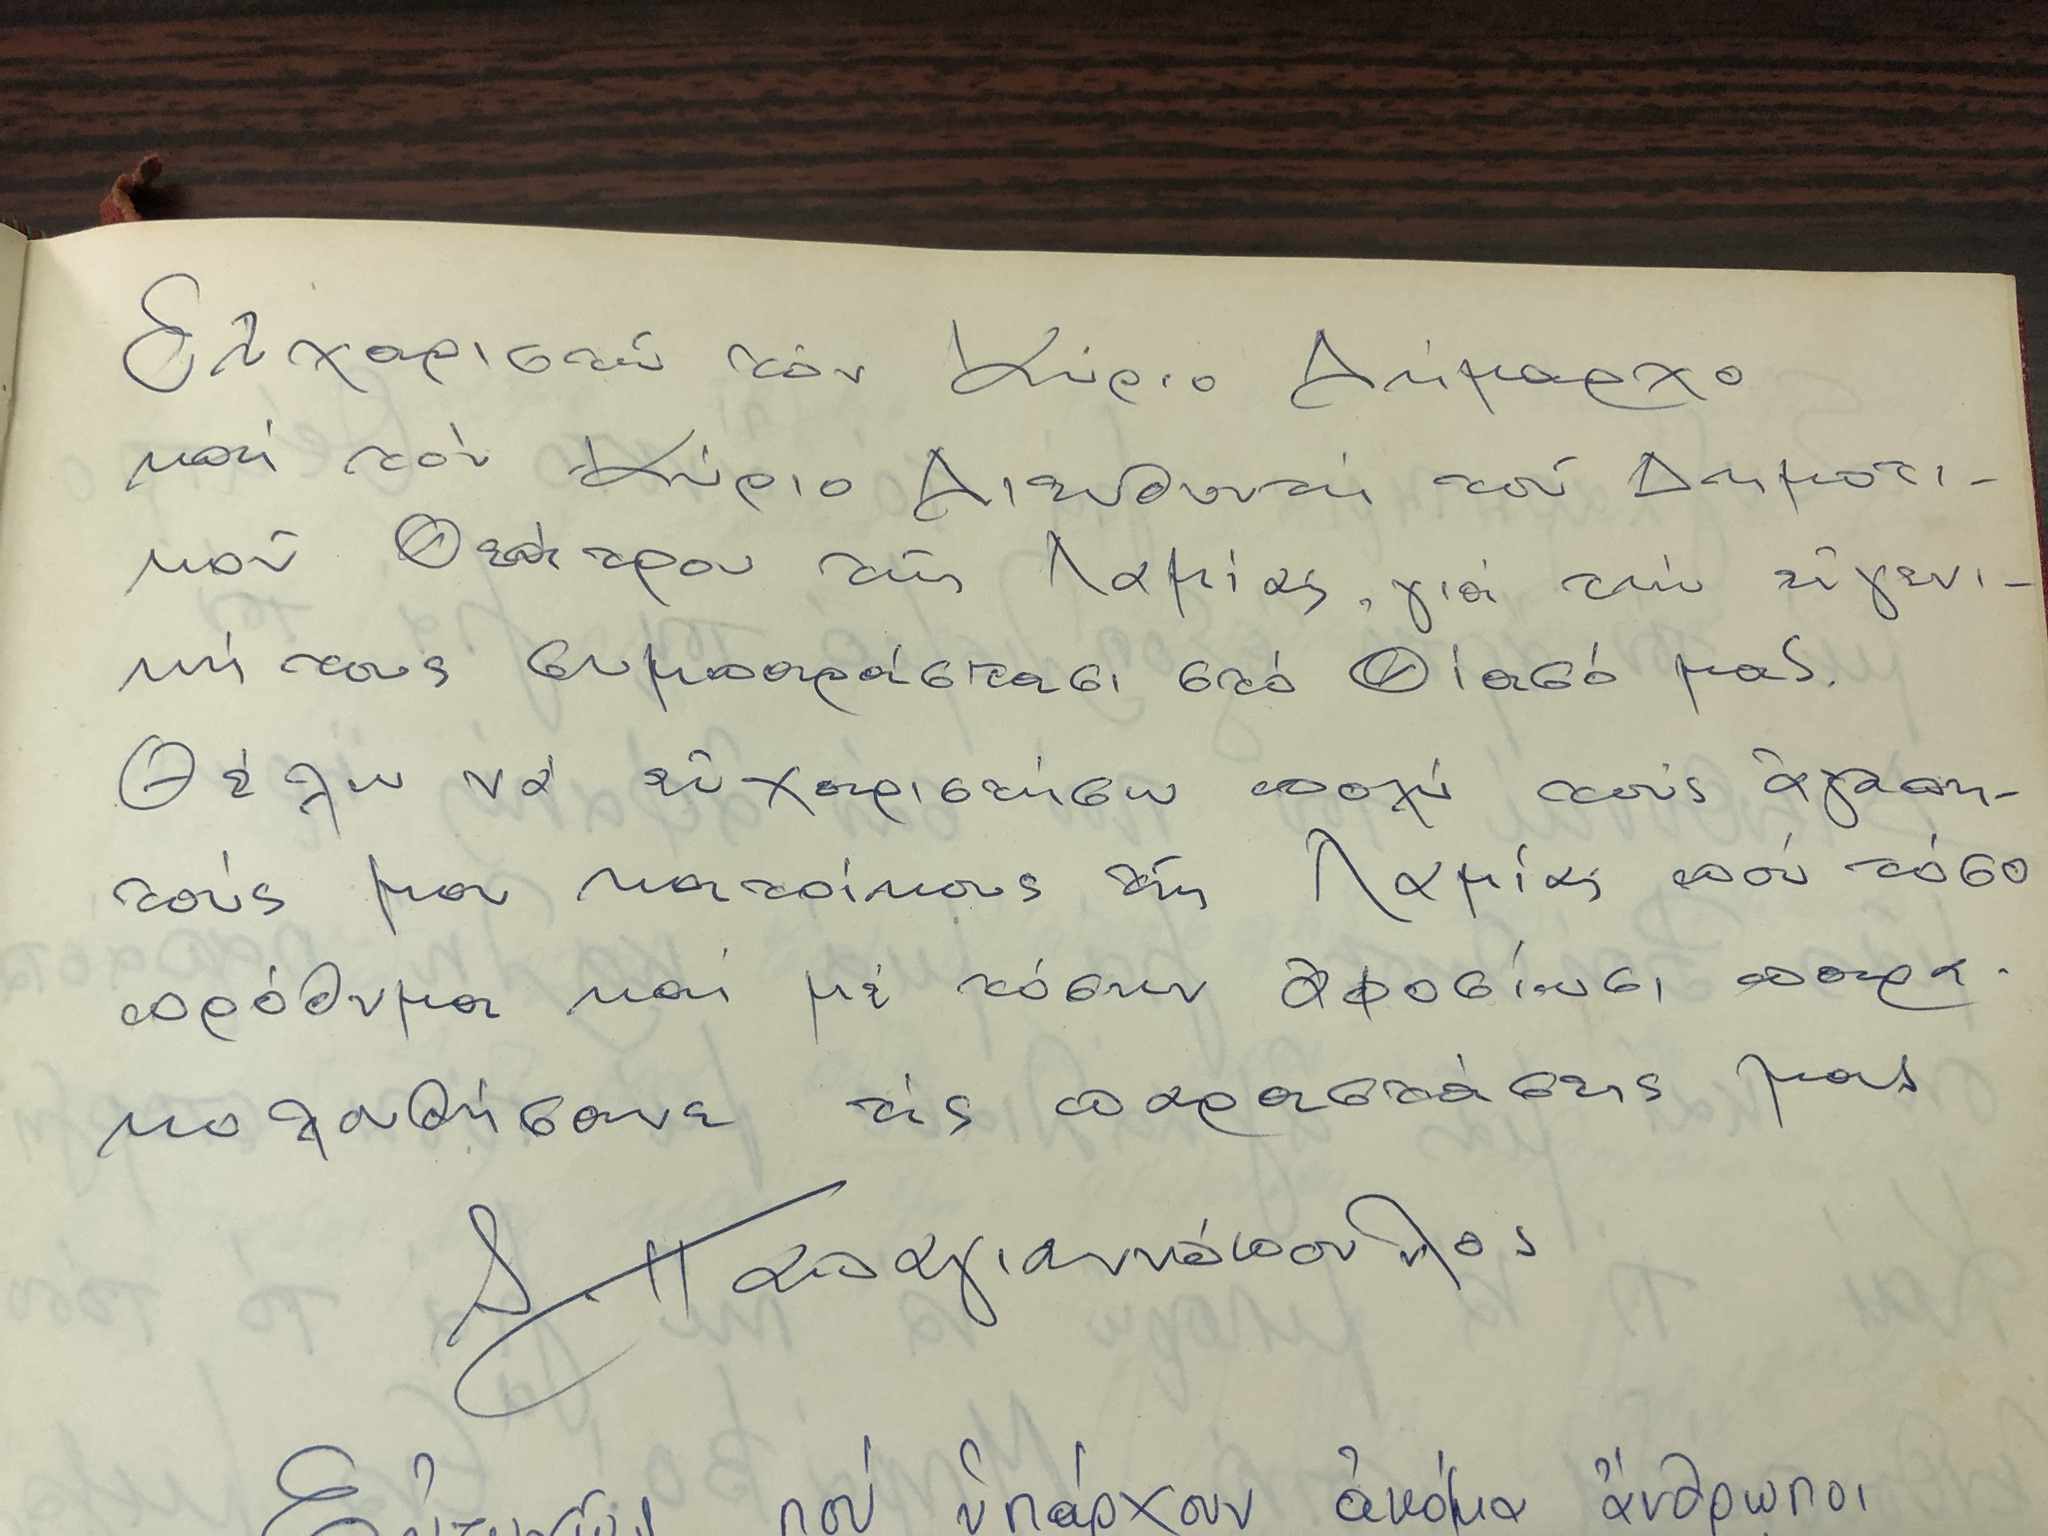 Εὐχαριστῶ τόν Κύριο Δήμαρχο
καί τόν Κύριο Διευθυντή τοῦ Δημοτι-
κοῦ Θεάτρου τῆς Λαμίας, γιά τήν εὐγενι-
κή τους συμπαράστασι στό Θίασό μας.
Θέλω νά εὐχαριστήσω πολύ τούς ἀγαπη-
τούς μου κατοίκους τῆς Λαμίας πού τόσο
πρόθυμα καί μέ τόσην ἀφοσίωσι παρα-
κολουθήσανε τίς παραστάσεις μας
Δ. Παπαγιαννόπουλος
Εὐτυχῶς πού ὑπάρχουν ἀκόμα ἄνθρωποι